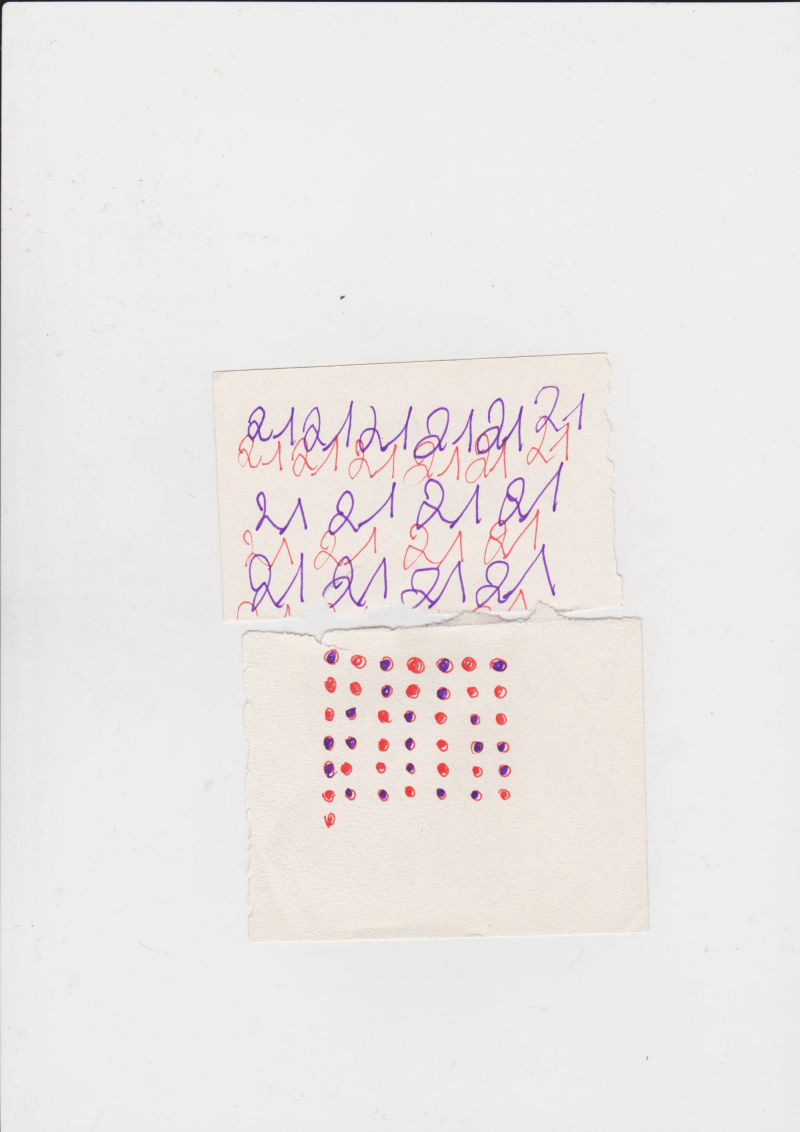 21 21 21 21 21 21
21 21 21 21 21 21
21 21 21 21
21 21 21 21
21 21 21 21